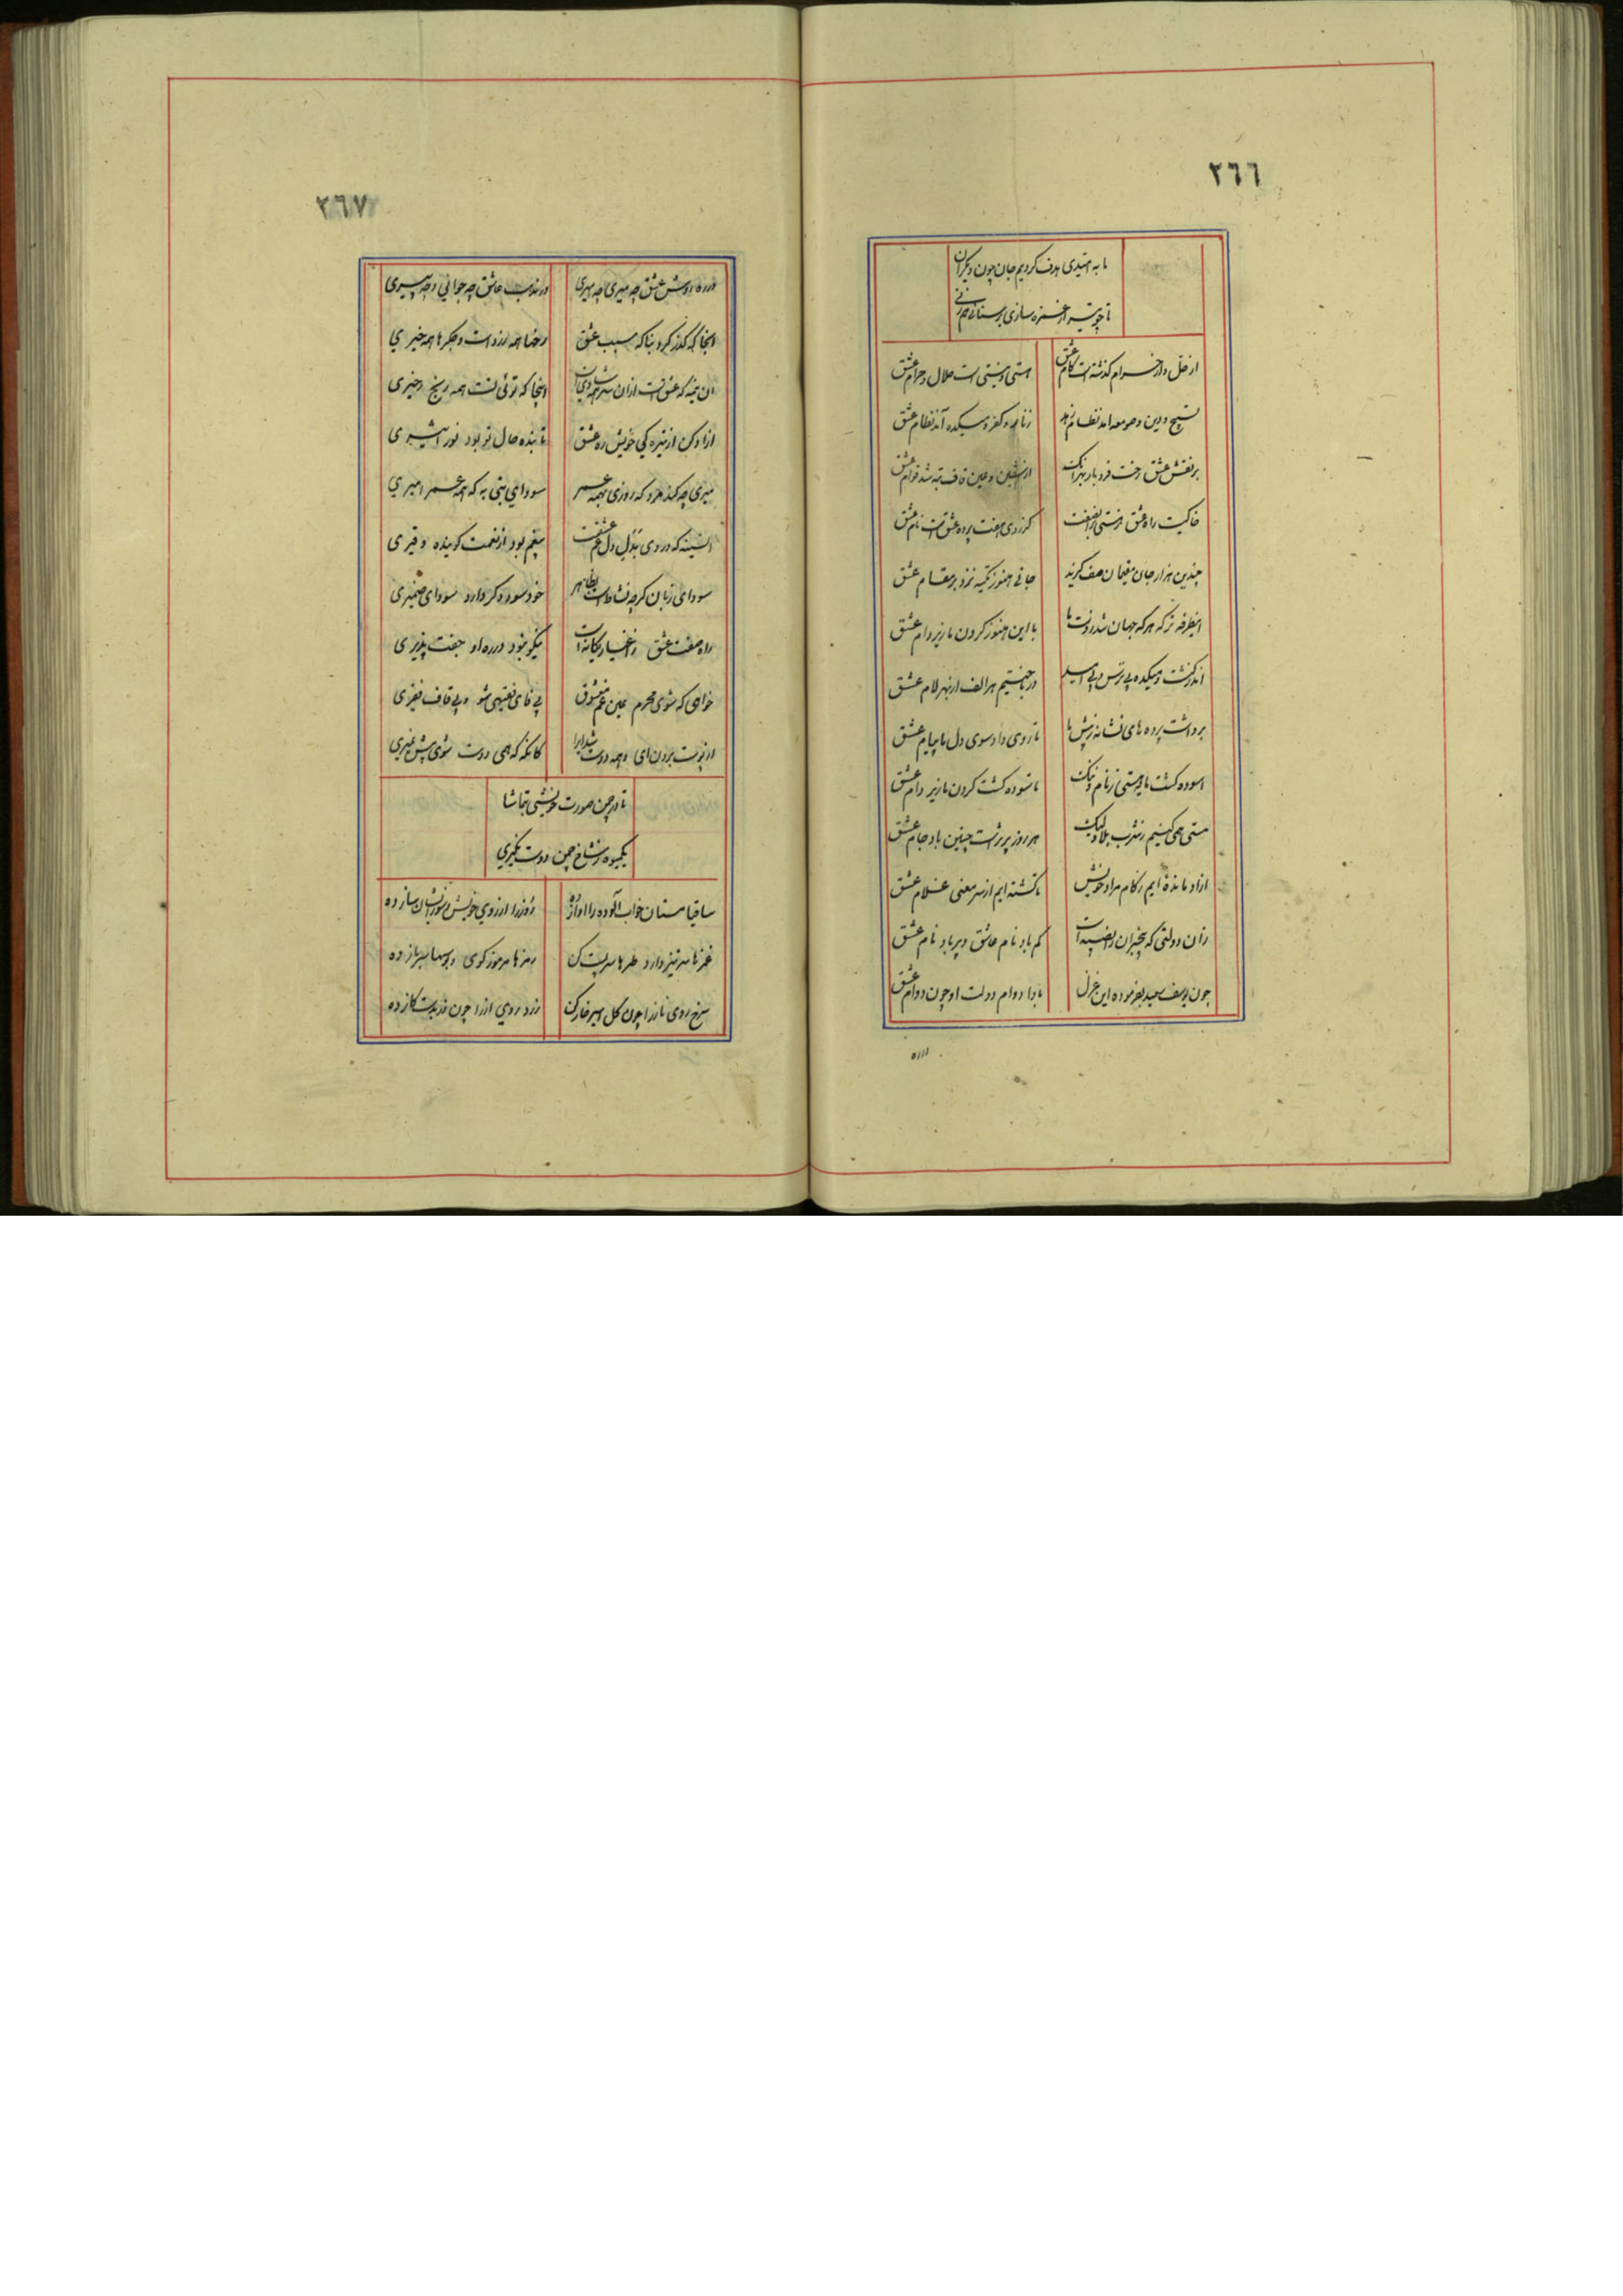 ٢٦٦
ما به امیدی هدف کردیم جان چون دیگران
تا چو تیر از غمزه سازی بر سنائی هم زنی
از حل و از حرام گذشته است کام عشق
هستی و نیستی است حلال و حرام عشق
تسبیح و دین و صومعه آمد نظام زهد
زنار و کفر و میکده آمد نظام عشق
بر نقش عشق
از شین و عین و قاف تبه شد قوام عشق
خاکیست راه عشق
کز روی هفت پرده عشقست نام عشق
چندین هزار جان مقیمان صف کرند
جانی هنوز تکیه نزد بر مقام عشق
اینطرفه تر که هر که جهان شد
با این هنوز گردن ما زیر دام عشق
اندر گذشت میکده بی ترس و بی
در باختیم هر الف از بهر لام عشق
برداشت پرده های ز پیش ما
تا روی داد سوی دل ما پیام عشق
اسوده گشت ز نام و ننگ
تاسوده گشت گردن ما زیر دام عشق
مستی همی کنیم ز شرب بلا ولیک
هر روز پرترست چنین باد جام عشق
ازاد مانده ایم ز کام مراد خویش
تا گشته ایم از سر معنی غلام عشق
زان دولتی که بیخبران را نصیبه است
کم باد نام عاشق و پر باد نام عشق
چون یوسف سعید بفرموده این غزل
بادا دوام دولت او چون دوام عشق
در ره
٢٦٧
در ره روش عشق چه میری چه اسیری
در مذهب عاشق چه جوانی و چه پیری
انجا که گذر کرد بناگه سبب عشق
رخها همه زردست و جگرها همه خیری
ان نیمه که عشق است ازان سو همه شادی است
اینجا که توئی تست همه رنج و زحیری
ازاد کن از تیرگی خویش ره عشق
تا بنده حال تو بود نور اثیری
میری چه کند مرد که روزی بهمه عمر
سودای بتی به که همه عمر امیری
ان سینه که در وی بدل دل غم عشقست
بیغم بود از نعمت گوینده و قیری
سودای زبان گرچه نشاط است بظاهر
خود سود دگر دارد سودای ضمیری
راه صفت عشق ز اغیار یگانه است
نیکو نبود در ره او جفت پذیری
خواهی که شوی محرم عین غم معشوق
بی فای فقیهی شو و بی قاف فقیری
از پوست برون ای و همه دوست
کانگه که همی دوست شوی پیش
تا در چمن صورت خویشی تماشا
یک میوه ز شاخ چمن دوست نگیری
ساقیا مستان خواب آلوده را اواز ده
روز را از روی خویش و سوز ایشان ساز ده
غمزها سر تیز دار و طرها سر پست کن
رمزها سرموز گوی و بوسها سرباز ده
سرخ روی ناز را چون گل اسیر خار کن
زرد روی از را چون زر بدست گاز ده